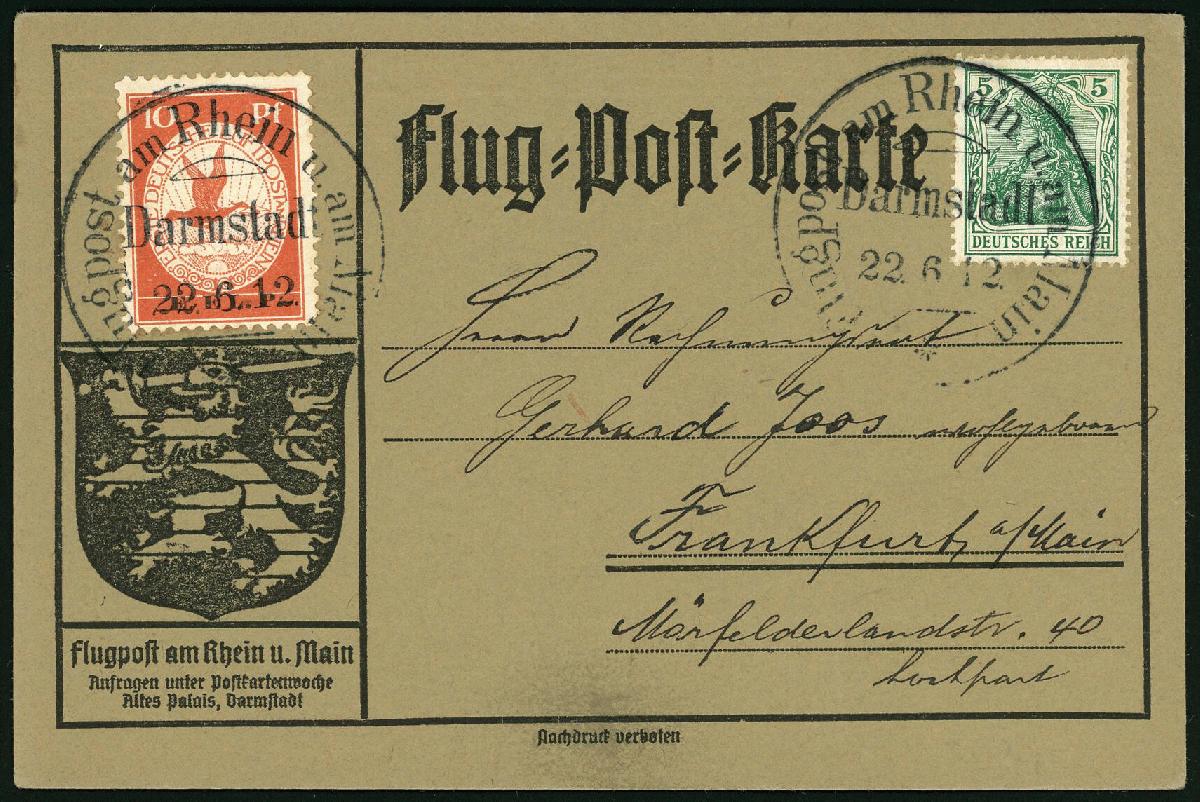 10 Pf
ERSTE DEUTSCHE LUFTPOST AM RHEIN
Flugpost am Rhein u. am Main
Darmstadt
22.6.12.
Flug=Post=Karte
5 5
DEUTSCHES REICH
Flugpost am Rhein u. am Main
Darmstadt
22.6.12.
Herrn
Gerhard Joos
Frankfurt a/Main
Mörfelderlandstr. 40
Flugpost am Rhein u. Main
Anfragen unter Postkartenwoche
Altes Palais, Darmstadt
Nachdruck verboten